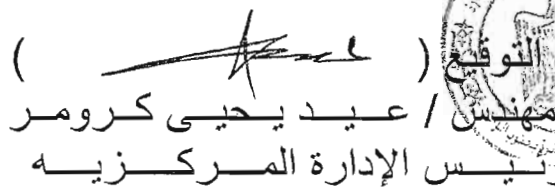 التوقيع ( )
مهندس / عيد يحيى كرومر
رئيس الإدارة المركزيه